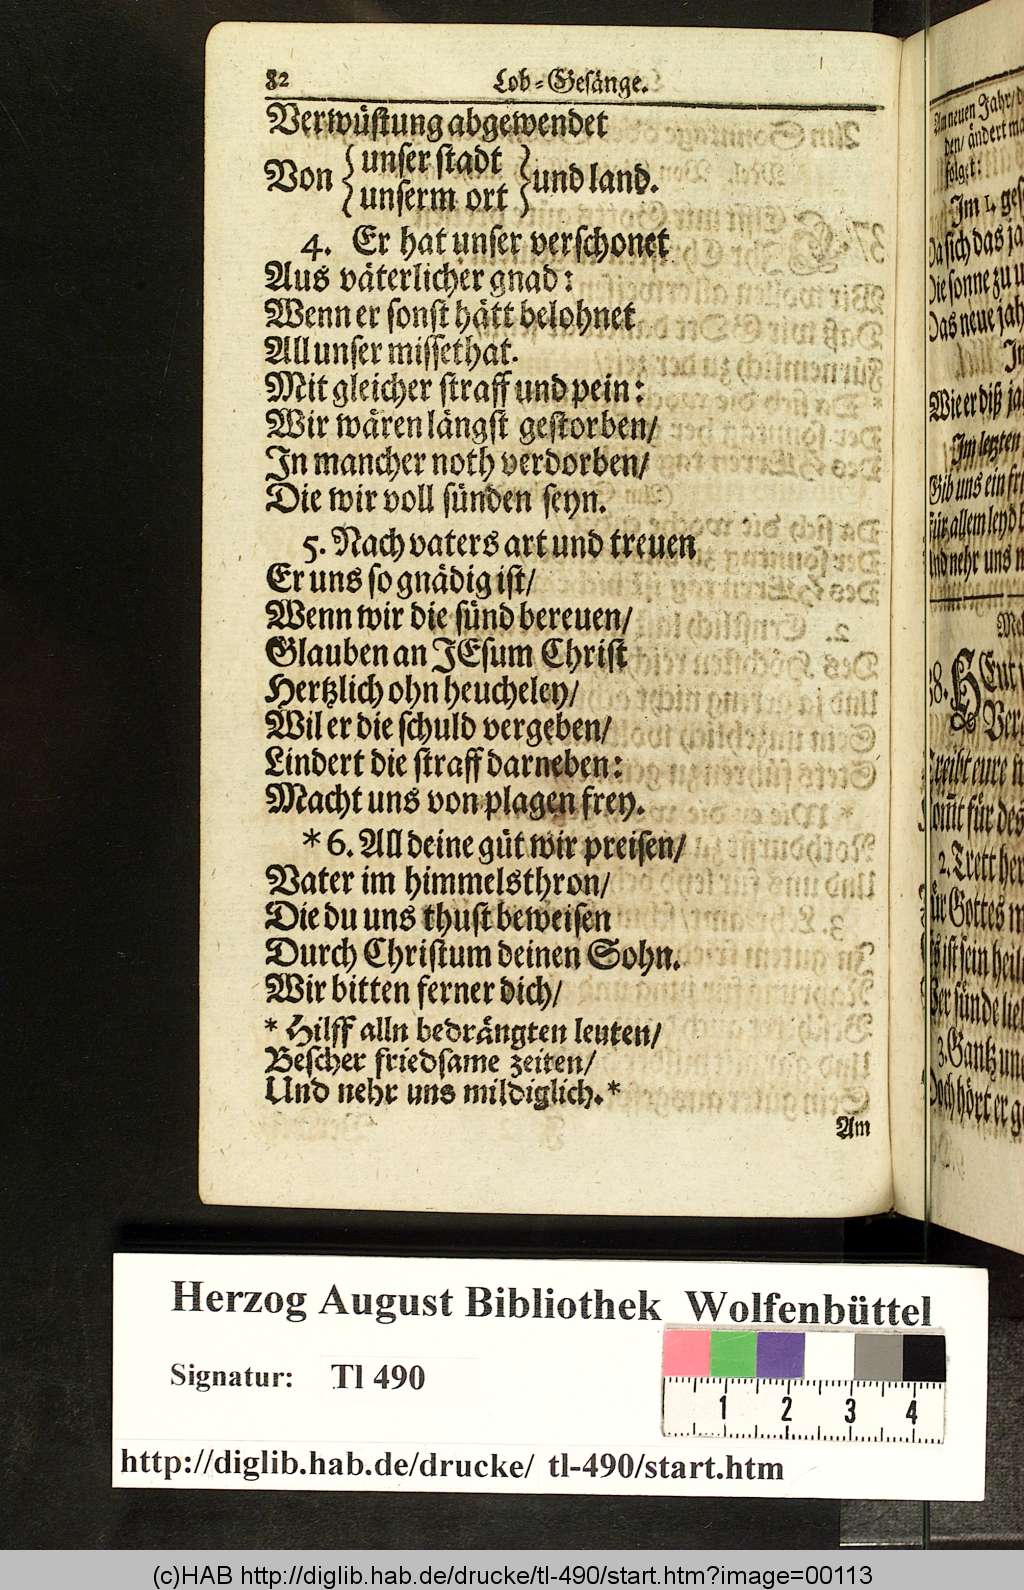 82 Lob-Gesänge.
Verwüstung abgewendet
Von { unser stadt } und land.
{ unserm ort }
4. Er hat unser verschonet
Aus väterlicher gnad:
Wenn er sonst hätt belohnet
All unser missethat.
Mit gleicher straff und pein:
Wir wären längst gestorben/
In mancher noth verdorben/
Die wir voll sünden seyn.
5. Nach vaters art und treuen
Er uns so gnädig ist/
Wenn wir die sünd bereuen/
Glauben an JEsum Christ
Hertzlich ohn heucheley/
Wil er die schuld vergeben/
Lindert die straff darneben:
Macht uns von plagen frey.
* 6. All deine güt wir preisen/
Vater im himmelsthron/
Die du uns thust beweisen
Durch Christum deinen Sohn.
Wir bitten ferner dich/
* Hilff alln bedrängten leuten/
Bescher friedsame zeiten/
Und nehr uns mildiglich.*
Am
Am neuen Jahr/
den/ ändert
folget:
Im 1.
Da sich das
Die sonne zu
Das neue
Wie er diß
Im letzten
Gib uns ein
Für allem leyd
Und nehr uns
38. HEut
2. Trett
Für Gottes
3. Gantz
Doch hört er
Herzog August Bibliothek Wolfenbüttel
Signatur: Tl 490
1 2 3 4
http://diglib.hab.de/drucke/ tl-490/start.htm
(c)HAB http://diglib.hab.de/drucke/tl-490/start.htm?image=00113